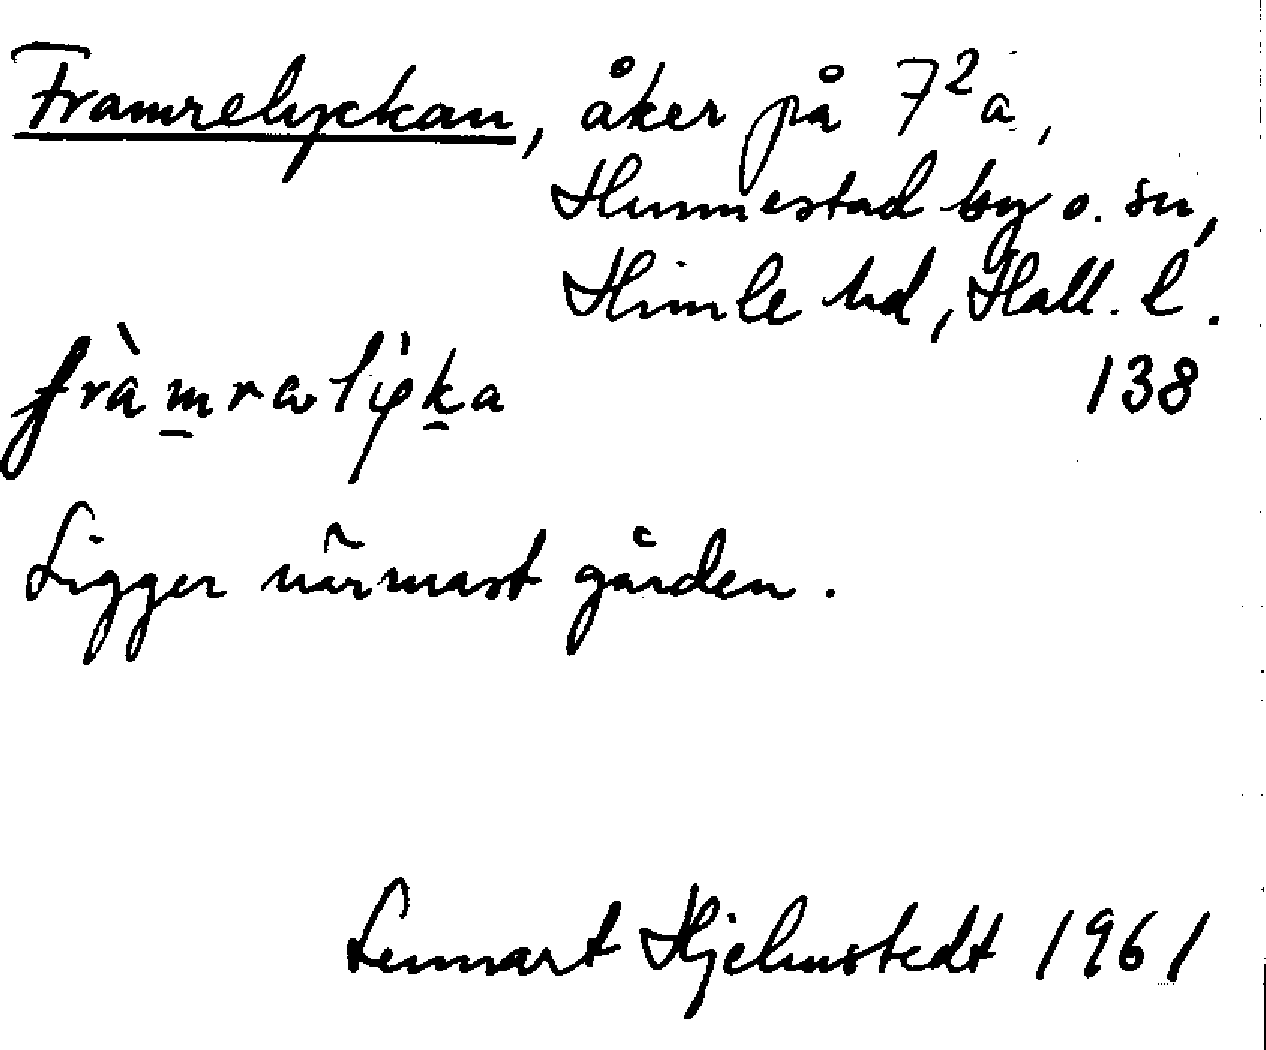 Framrelyckan, åker på 7²a,
Hunnestad by o. sn,
Himle hd, Hall. l.
138
fràmralyka
Ligger närmast gården.
Lennart Hjelmstedt 1961